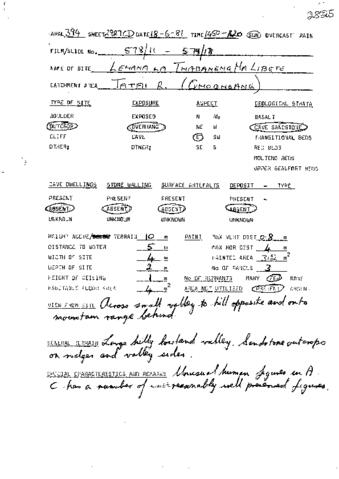 2835
ARAL 394 SHEET 2827CD DATE 18-6-81 TIME 1400-1420 SUN OVERCAST RAIN
FILM/SLIDE No. 578/11 - 578/18
NAME OF SITE LEHANA LA THABANENG HA LIBETE
CATCHMENT AREA JATEU R. (QHOQHOANE)
TYPE OF SITE EXPOSURE ASPECT GEOLOGICAL STRATA
BOULDER EXPOSED N NW BASALT
OUTCROP OVERHANG NE W CAVE SANDSTONE
CLIFF CAVE E SW TRANSITIONAL BEDS
OTHER: OTHER: SE S RED BEDS
MOLTENO BEDS
UPPER BEAUFORT BEDS
CAVE DWELLINGS STONE WALLING SURFACE ARTEFACTS DEPOSIT - TYPE
PRESENT PRESENT PRESENT PRESENT -
ABSENT ABSENT ABSENT ABSENT
UNKNOWN UNKNOWN UNKNOWN UNKNOWN
HEIGHT ABOVE TERRAIN 10 m PAINT MAX VERT DIST 0.8 m
DISTANCE TO WATER 5 m MAX HOR DIST 4 m
WIDTH OF SITE 4 m PAINTED AREA 3.2 m²
DEPTH OF SITE 2 m No. OF PANELS 3
HEIGHT OF CEILING 1 m No OF REMNANTS MANY FEW NONE
HABITABLE FLOOR AREA 4 m² AREA NOT UTILISED
VIEW FROM SITE Across small valley to hill opposite and onto
mountain range behind
GENERAL TERRAIN Large hilly lowland valley. Sandstone outcrops
on ridges and valley sides.
SPECIAL CHARACTERISTICS AND REMARKS Unusual human figures in A
C has a number of reasonably well preserved figures.